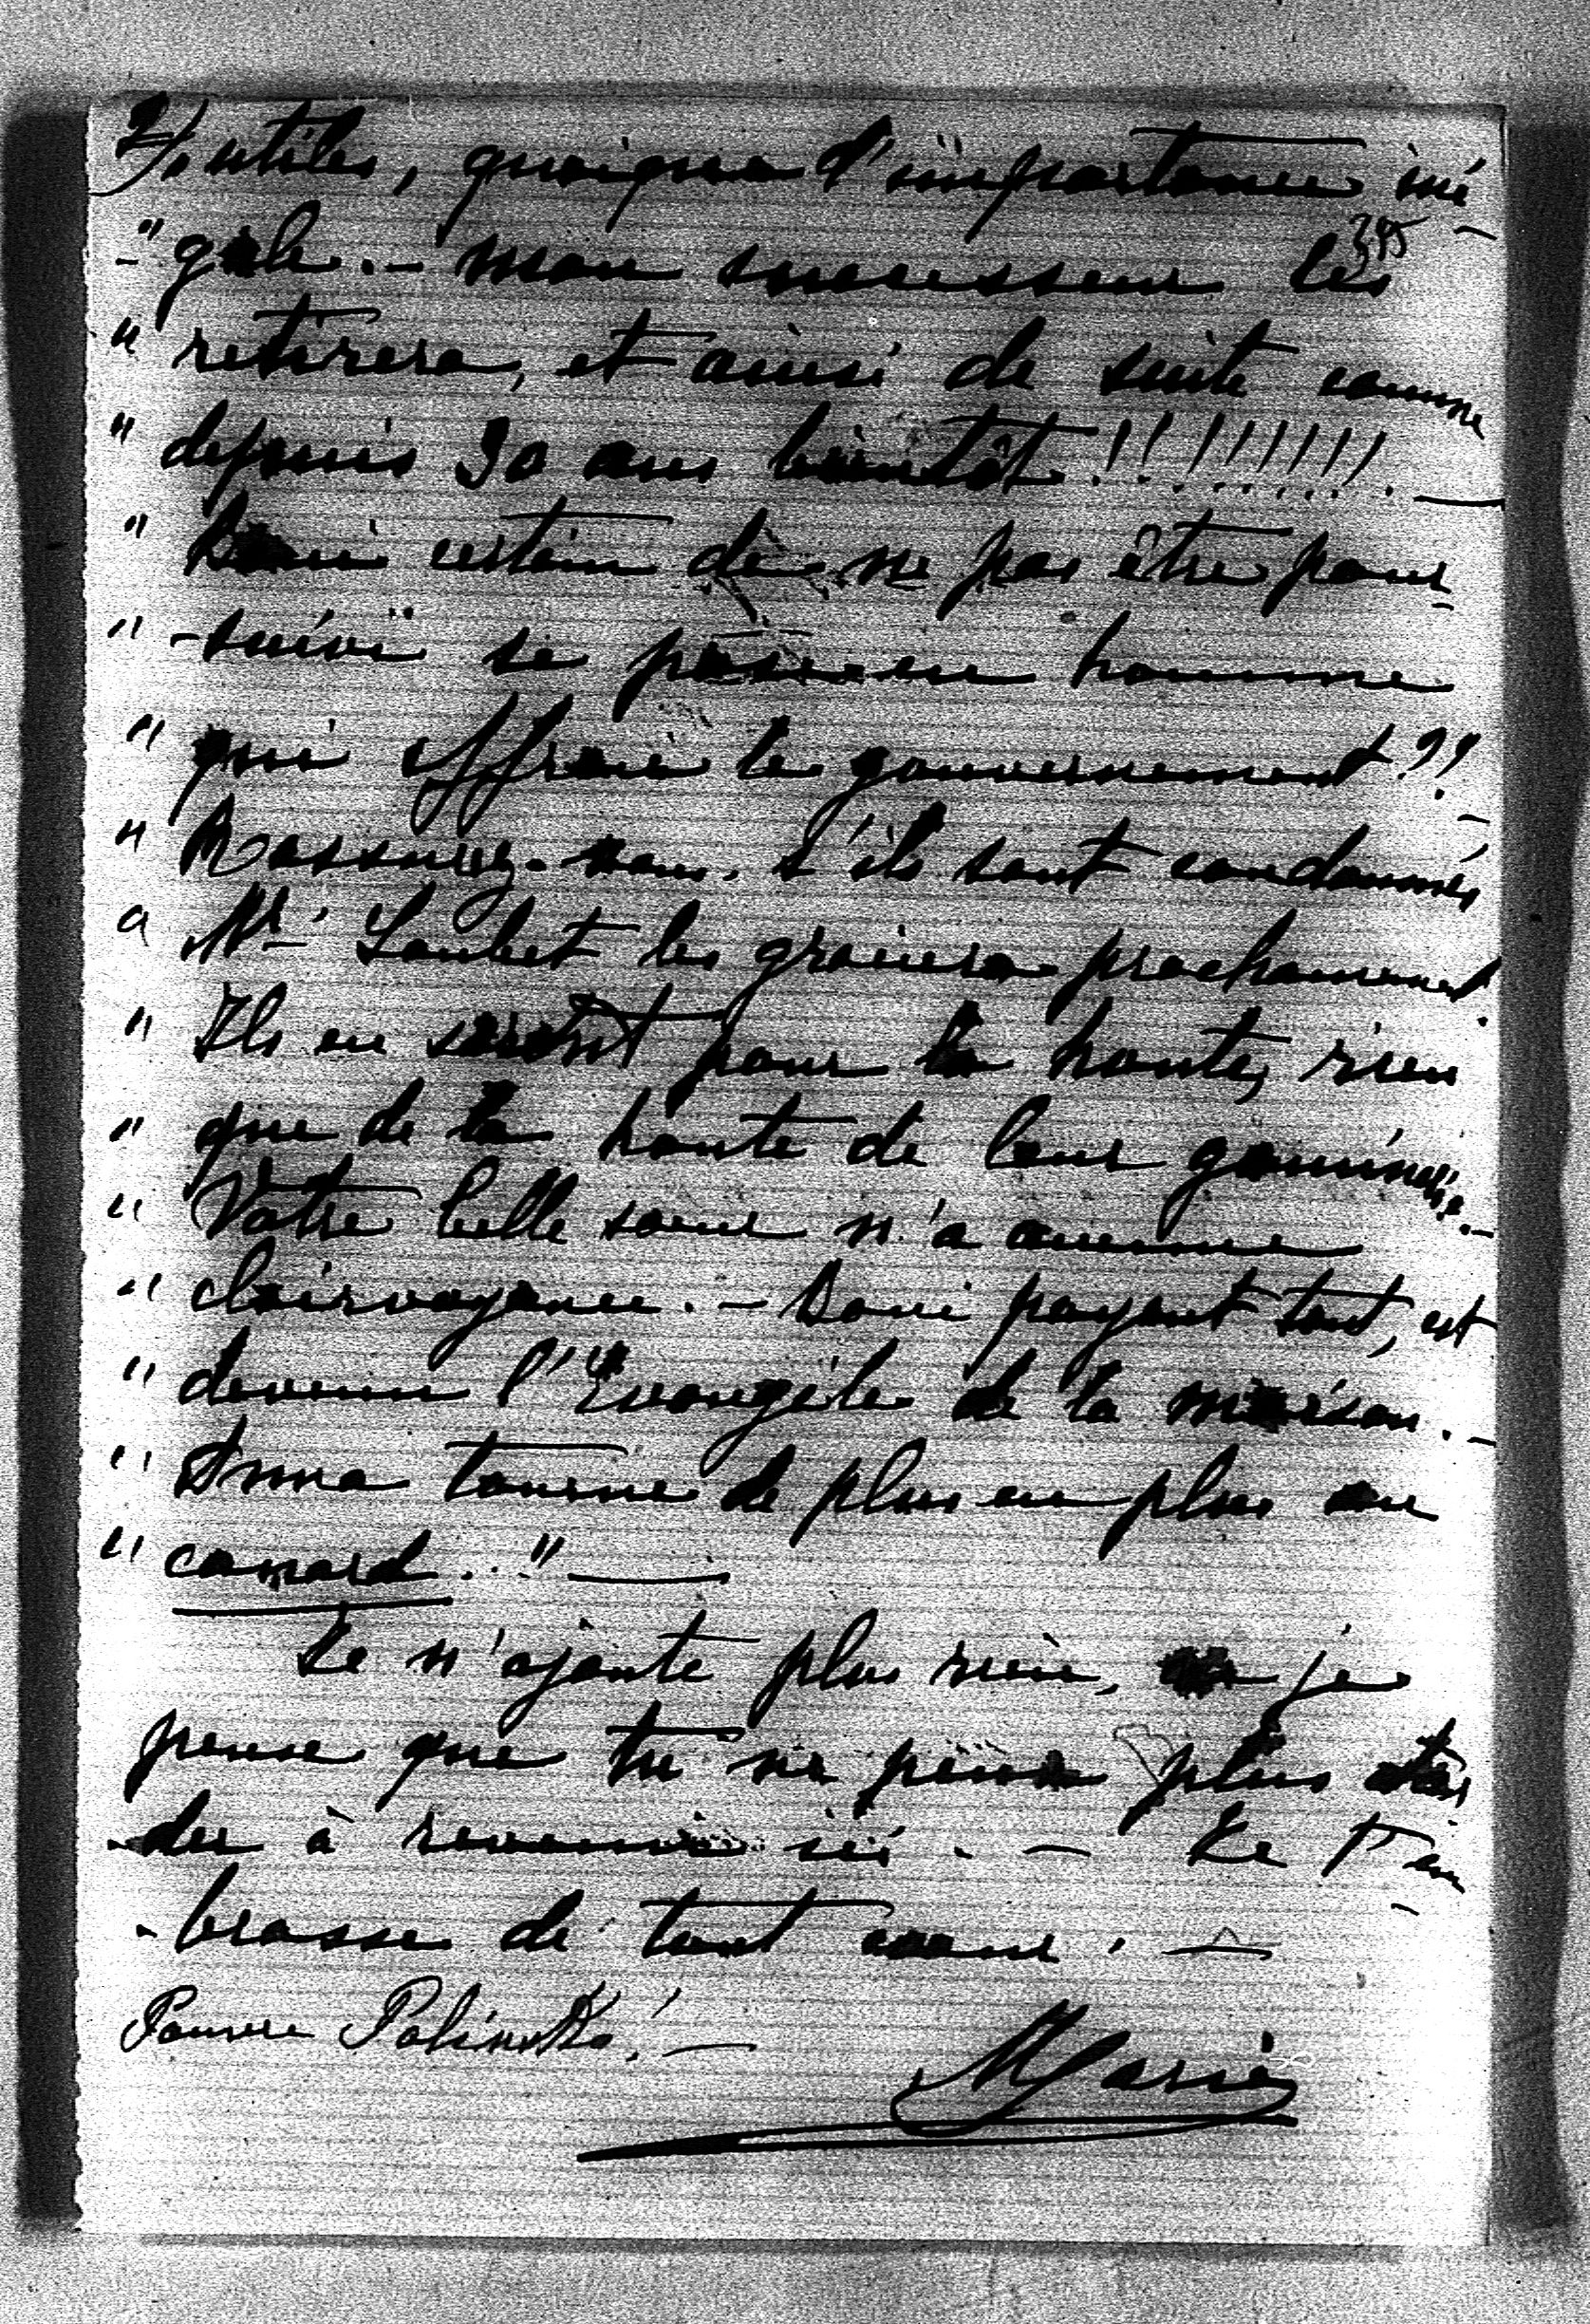 7/. utiles, quoique d'importance iné
-" gale. - mon successeur les
395
" retirera, et ainsi de suite comme
" depuis 30 ans bientôt !!!!!!!! —
" certain de ne pas être pour
" -suivi se pose en homme
" qui effraie le gouvernement ??
" Rassurez-vous. s'ils sont condamnés
" Mr Loubet les graciera prochainement.
" Ils en seront pour la honte, rien
" que de la honte de leur gaminerie. -
" Votre belle soeur n'a aucune
" clairvoyance. - payant tout, est
" devenu l'Evangile de la maison. -
" Anna tourne de plus en plus au
" canard.." —
Je n'ajoute plus rien, car je
pense que tu ne peux plus tar
-der à revenir ici. - Je t'em
-brasse de tout coeur. —
Pauvre ! —
Marie